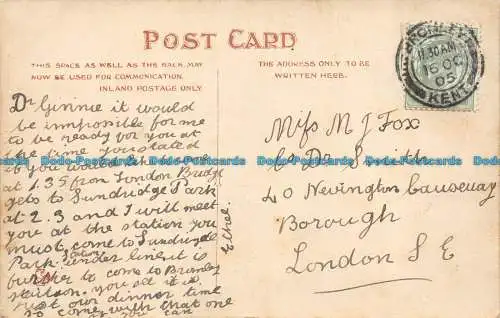 POST CARD
THIS SPACE AS WELL AS THE BACK, MAY
NOW BE USED FOR COMMUNICATION.
INLAND POSTAGE ONLY.
THE ADDRESS ONLY TO BE
WRITTEN HERE.
11.30 AM
16 OC
05
KENT
Dr Ginnie it would
be impossible for me
to be ready for you at
the time you stated
if you would
at 1.35 from London Bridge
gets to Sundridge Park
at 2.3 and I will meet
you at the station you
must come to Sundridge
Park Station
further to come to Bromley
station. you see it is
just our dinner time
so come with that one
if you can
Ethel.
Miss M J Fox
C/o Dr Smith
40 Newington Causeway
Borough
London S E
Dado-Postcards